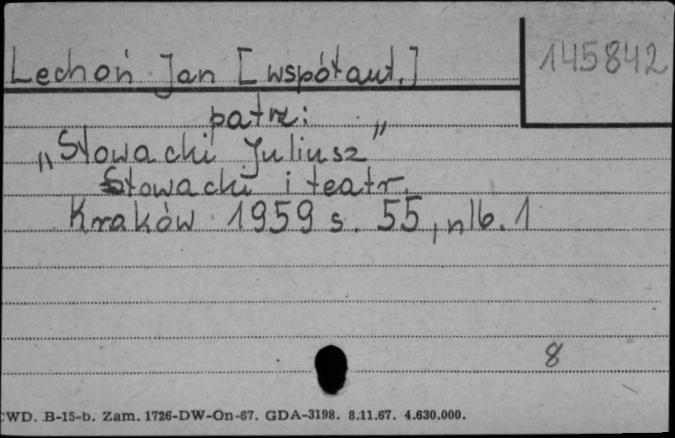 Lechoń Jan [współaut.]
145842
patrz:
"Słowacki Juliusz"
Słowacki i teatr.
Kraków 1959 s. 55, nlb. 1
8
CWD. B-15-b. Zam. 1726-DW-On-67. GDA-3198. 8.11.67. 4.630.000.